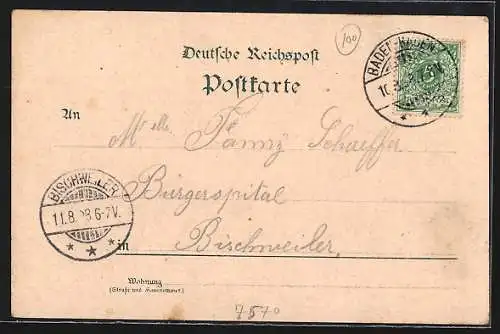 100
Deutsche Reichspost
Postkarte
BADEN-BADEN
10.8.
5
An
Mlle. Fanny Schaeffer
Bürgerspital
BISCHWEILER
11.8.98.6-7V.
in Bischweiler
Wohnung
(Straße und Hausnummer)
7570